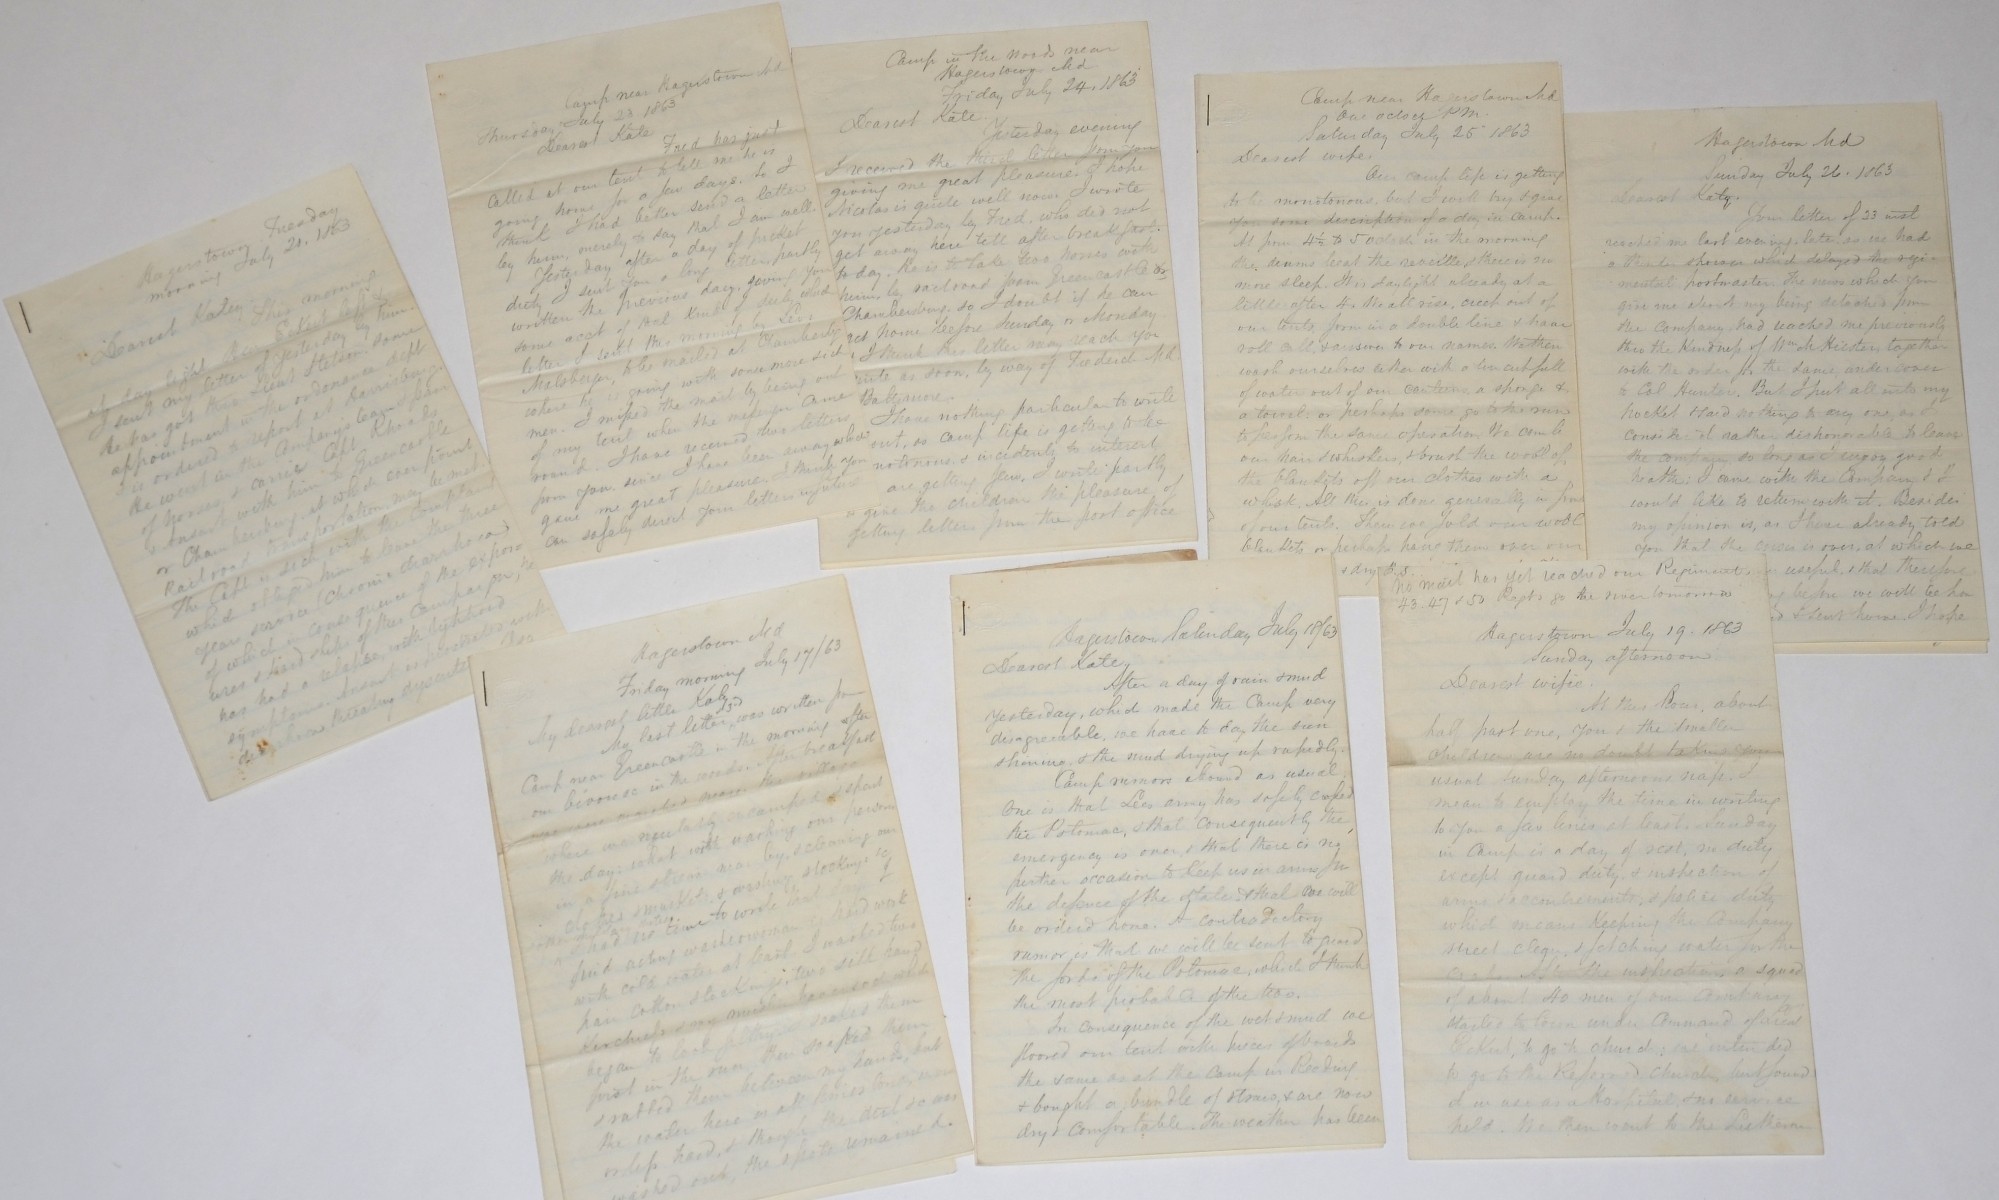 Hagerstown Tuesday
morning July 21. 1863
Dearest Katey
This morning
at day light
I sent my letter of yesterday by him.
he has got thro Lieut Stetson some
appointment in the ordonance dept
& is ordered to report at Harrisburg.
He went in the Company's team & span
of horses, & carries Capt Rhoads
& baset with him to Greencastle
or Chambersburg, at which
Railroad transportation may be met.
The Capt is sick with the complaint
which obliged him to leave the three
years service (Chronic diarrhoea)
of which in consequence of the
ures & hardships of this Campaign, he
has had a relapse, with
symptoms
Camp near Hagerstown Md
Thursday July 23 1863
Dearest Kate
Fred has just
called at our tent to tell me he is
going home for a few days. So I
think I had better send a letter
by him, merely to say that I am well.
Yesterday after a day of picket
duty I sent you a long letter, partly
written the previous day, giving you
some acct of that kind of duty, which
letter I sent this morning by
Malsberger, to be mailed at Chambersbg
where he is going with some more sick
men. I missed the mail by being out
of my tent when the messenger came
round. I have received two letters
from you, since I have been away, which
gave me great pleasure. I think you
can safely direct your letters in future
Camp in the woods near
Hagerstown Md
Friday July 24. 1863
Dearest Kate.
Yesterday evening
I received the third letter from you
giving me great pleasure. I hope
Nicolas is quite well now. I wrote
you yesterday by Fred, who did not
get away here till after breakfast.
to day. He is to take two horses with
him, by railroad from Greencastle or
Chambersburg, so I doubt if he can
home before Sunday or Monday.
I think this letter may reach you
as soon, by way of Frederick Md
Baltimore.
I have nothing particular to write
so camp life is getting to be
notonous, & incidents to interest
are getting few. I write partly
give the children the pleasure of
getting letters from the post office
Camp near Hagerstown Md
One oclock PM.
Saturday July 25 1863
Dearest wife.
Our camp life is getting
to be monotonous, but I will try & give
you some description of a day in camp.
At from 4½ to 5 oclock in the morning
the drums beat the reveille, & there is no
more sleep. It is daylight already at a
little after 4. We all rise, creep out of
our tents, form in a double line & have
roll call, & answer to our names. We then
wash ourselves either with a tin cup full
of water out of our canteen, a sponge &
a towel: or perhaps some go to the run
to perform the same operation. We comb
our hair & whiskers, & brush the wool of
the blankets off our clothes with a
whisk. All this is done generally in front
of our tents. Then we fold our wool
blankets or perhaps hang them over our
Hagerstown Md
Sunday July 26. 1863
Dearest Katy.
Your letter of 23 inst
reached me last evening late, as we had
a thunder shower which delayed the regi-
mental postmaster. The news which you
give me about my being detached from
the Company, had reached me previously
thro the kindness of Wm M Hiester, together
with the order for the same, under cover
to Col Hunter. But I put all into my
pocket & said nothing to any one, as I
consider it rather dishonorable to leave
the company so long as I enjoy good
health: I came with the Company & I
would like to return with it. Besides
my opinion is, as I have already told
you that the crisis is over, at which we
useful, & that therefore
before we will be
& sent home. I hope
Hagerstown Md
Friday morning July 17/63
My dearest little Katy
My last letter was written from
Camp near Greencastle in the morning after
our bivouac in the woods. After breakfast
where we regularly encamped & spent
the day: what with washing our persons
in a fine stream near by, & cleaning our
clothes & muskets, & washing stockings &c
I had no time to write that day.
find acting washerwoman is hard work
with cold water at least. I washed two
pair cotton stockings, two silk hand
kerchiefs & my muslin
began to look filthy, I soaked them
first in the run, then soaped them
& rubbed them between my hands, but
the water here is all
or less hard, & though the dirt so was
washed out, the spots remained.
Hagerstown Saturday July 18/63
Dearest Kate,
After a day of rain & mud
yesterday, which made the Camp very
disagreeable, we have to day the sun
shining, & the mud drying up rapidly.
Camp rumors abound as usual.
One is that Lees army has safely crossed
the Potomac, & that consequently the
emergency is over, & that there is no
further occasion to keep us in arms for
the defence of the state, & that we will
be ordered home. A contradictory
rumor is that we will be sent to guard
the fords of the Potomac, which I think
the most probable of the two.
In consequence of the wet & mud we
floored our tent with pieces of boards
the same as at the Camp in Reading
& bought a bundle of straw, & are now
dry & comfortable. The weather has been
P.S.
No mail has yet reached our Regiment.
43. 47 & 50 Regts go the river tomorrow
Hagerstown July 19. 1863
Sunday afternoon
Dearest wifie.
At this hour, about
half past one, you & the smaller
children are no doubt taking your
usual Sunday afternoons nap. I
mean to employ the time in writing
to you a few lines at least. Sunday
in Camp is a day of rest, no duty
except guard duty, & inspection of
arms & accoutrements, & police duty
which means keeping the Company
street clean, & fetching water for the
cook. After the inspection, a squad
of about 40 men of our Company
started to town under command of Lieut
to go to church: we intended
to go to the Reformed Church, but found
it in use as a Hospital, & no service
held. We then went to the Lutheran